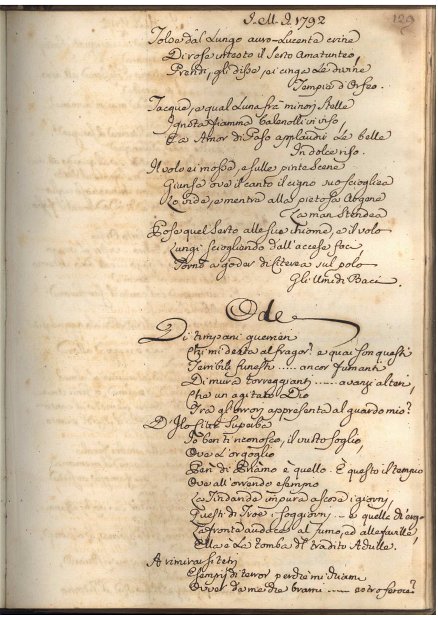 129
I. M. D. 1792
Tolse dal lungo auro-lucente crine
Di rose intesto il Serto Amatunteo,
Prendi, gli disse, e ci cinga le divine
Tempia d'Orfeo.
Tacque, e qual Luna fra minori Stelle
Ignota fiamma balenolli in viso,
E a Amor di Pafo applaudir le belle
In dolce riso.
Il volo ei mosse, e sulle pinte Scene
Giunse ove il canto il cigno suo scioglica
Londe, e mentre alla pietosa Argene
La man Stendea
Pose quel Serto alle sue chiome, e il volo
Lungi sciogliendo dall'accesa face
Tornò a goder di Citerea sul polo
Gli Umidi Baci.
Ode
Di timpani guerrieri
Chi mi desta al fragor? e quai son questi
Terribili funesti ..... ancor fumanti
Di mura torreggianti ...... avanzi alteri,
Che un agitato Dio
Tra gli orrori appresenta al guardo mio?
D'Ilo Città Superba
Io ben ti riconosco, il vasto soglio,
Ove l'orgoglio,
Peri di Priamo è quello. E questo il tempio
Ove all'orrendo esempio
La Tindarida impura ascosa i giorni,
Questi di Troe i soggiorni ... e quella ch'ergo
La fronte audace al fumo, ed alle faville,
Ella è la tomba del tradito Achille.
A rimirar si tetri
Esempj di terror perchè mi
Ovver da me che brami ..... estro feroce?